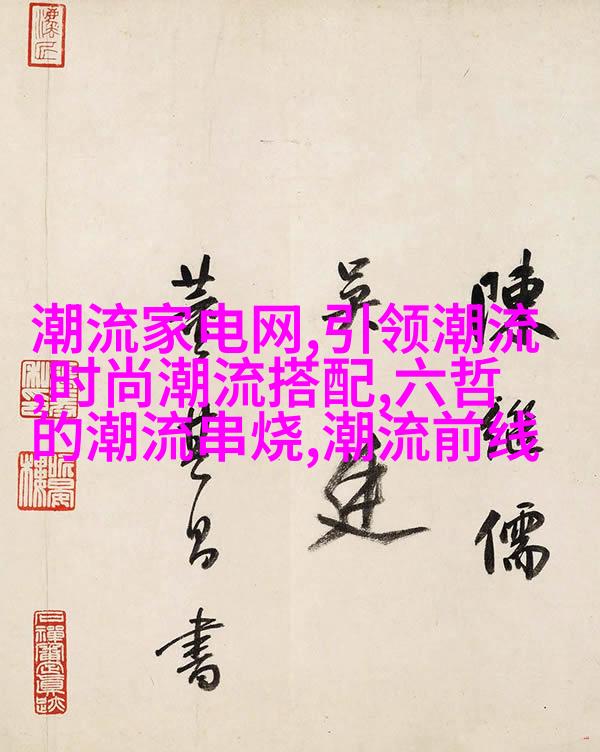 潮流家电网,引领潮流
,时尚潮流搭配,六哲
的潮流串烧,潮流前线
陳繼儒
吳廷
董其昌書